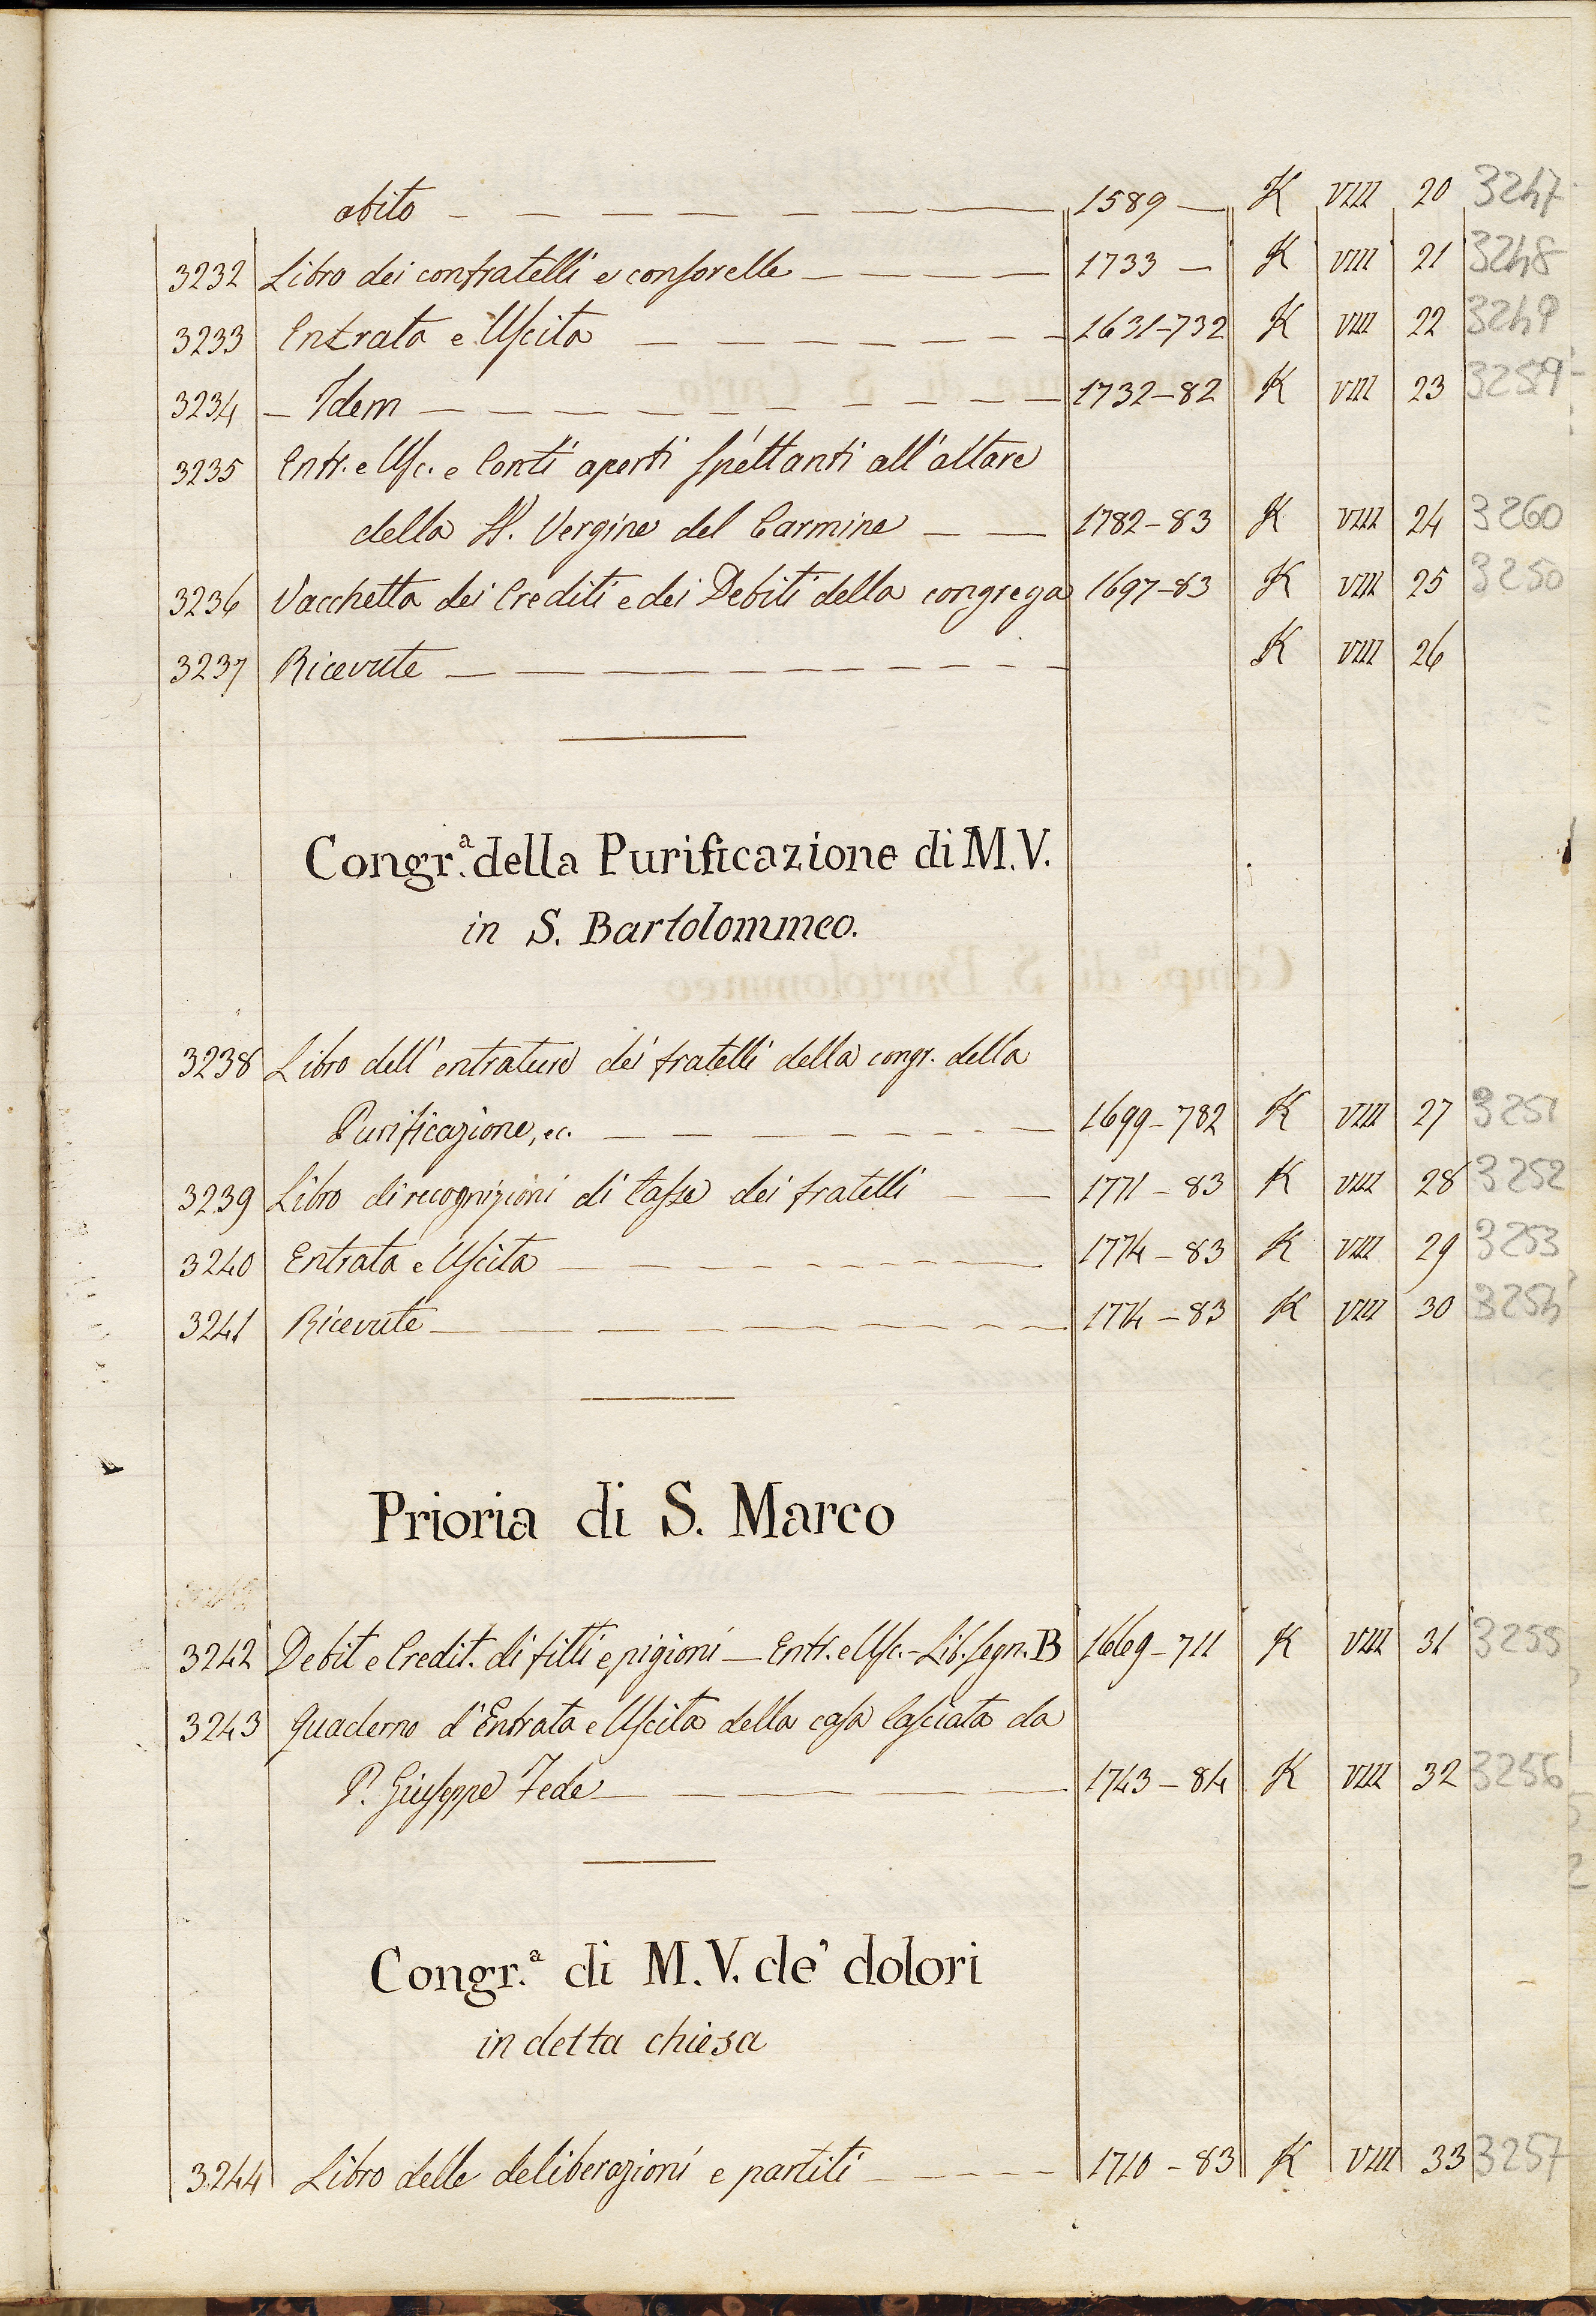 abito 1589 K VIII 20 3247
3232 Libro dei confratelli e consorelle 1733 K VIII 21 3248
3233 Entrata e Uscita 1631-732 K VIII 22 3249
3234 Idem 1732-82 K VIII 23 3259
3235 Entr. e Usc. e Conti aperti spettanti all'altare
della SS. Vergine del Carmine 1782-83 K VIII 24 3260
3236 Vacchetta dei Crediti e dei Debiti della congrega 1697-83 K VIII 25 3250
3237 Ricevute K VIII 26
Congr.a della Purificazione di M.V.
in S. Bartolommeo.
3238 Libro dell'entrature dei fratelli della congr. della
Purificazione, ec. 1699-782 K VIII 27 3251
3239 Libro di recognizioni di Tasse dei fratelli 1771-83 K VIII 28 3252
3240 Entrata e Uscita 1774-83 K VIII 29 3253
3241 Ricevute 1774-83 K VIII 30 3254
Prioria di S. Marco
3242 Debit e Credit. di fitti e pigioni — Entr. e Usc. - Lib. segn. B 1669-711 K VIII 31 3255
3243 Quaderno d'Entrata e Uscita della casa lasciata da
P. Giuseppe Fede 1743-84 K VIII 32 3256
Congr.a di M.V. de' dolori
in detta chiesa
3244 Libro delle deliberazioni e partiti 1710-83 K VIII 33 3257